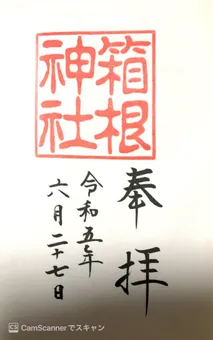 箱根
神社
奉拝
令和五年
六月二十七日
CS CamScannerでスキャン